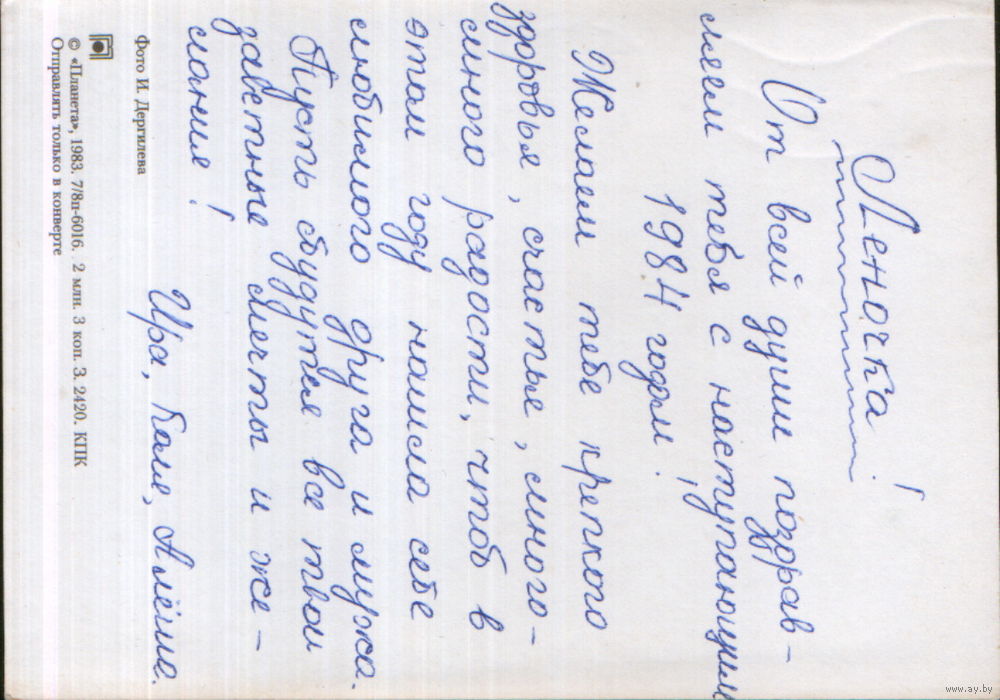 Леночка!
От всей души поздрав-
ляем тебя с наступающим
1984 годом!
Желаем тебе крепкого
здоровья, счастья, много-
много радости, чтоб в
этом году нашла себе
любимого друга и мужа.
Пусть сбудутся все твои
заветные мечты и же-
лания!
Ира, Галя, Алёша.
Фото И. Дергилева
© «Планета», 1983. 7/8п-6016. 2 млн. 3 коп. З. 2420. КПК
Отправлять только в конверте
www.ay.by